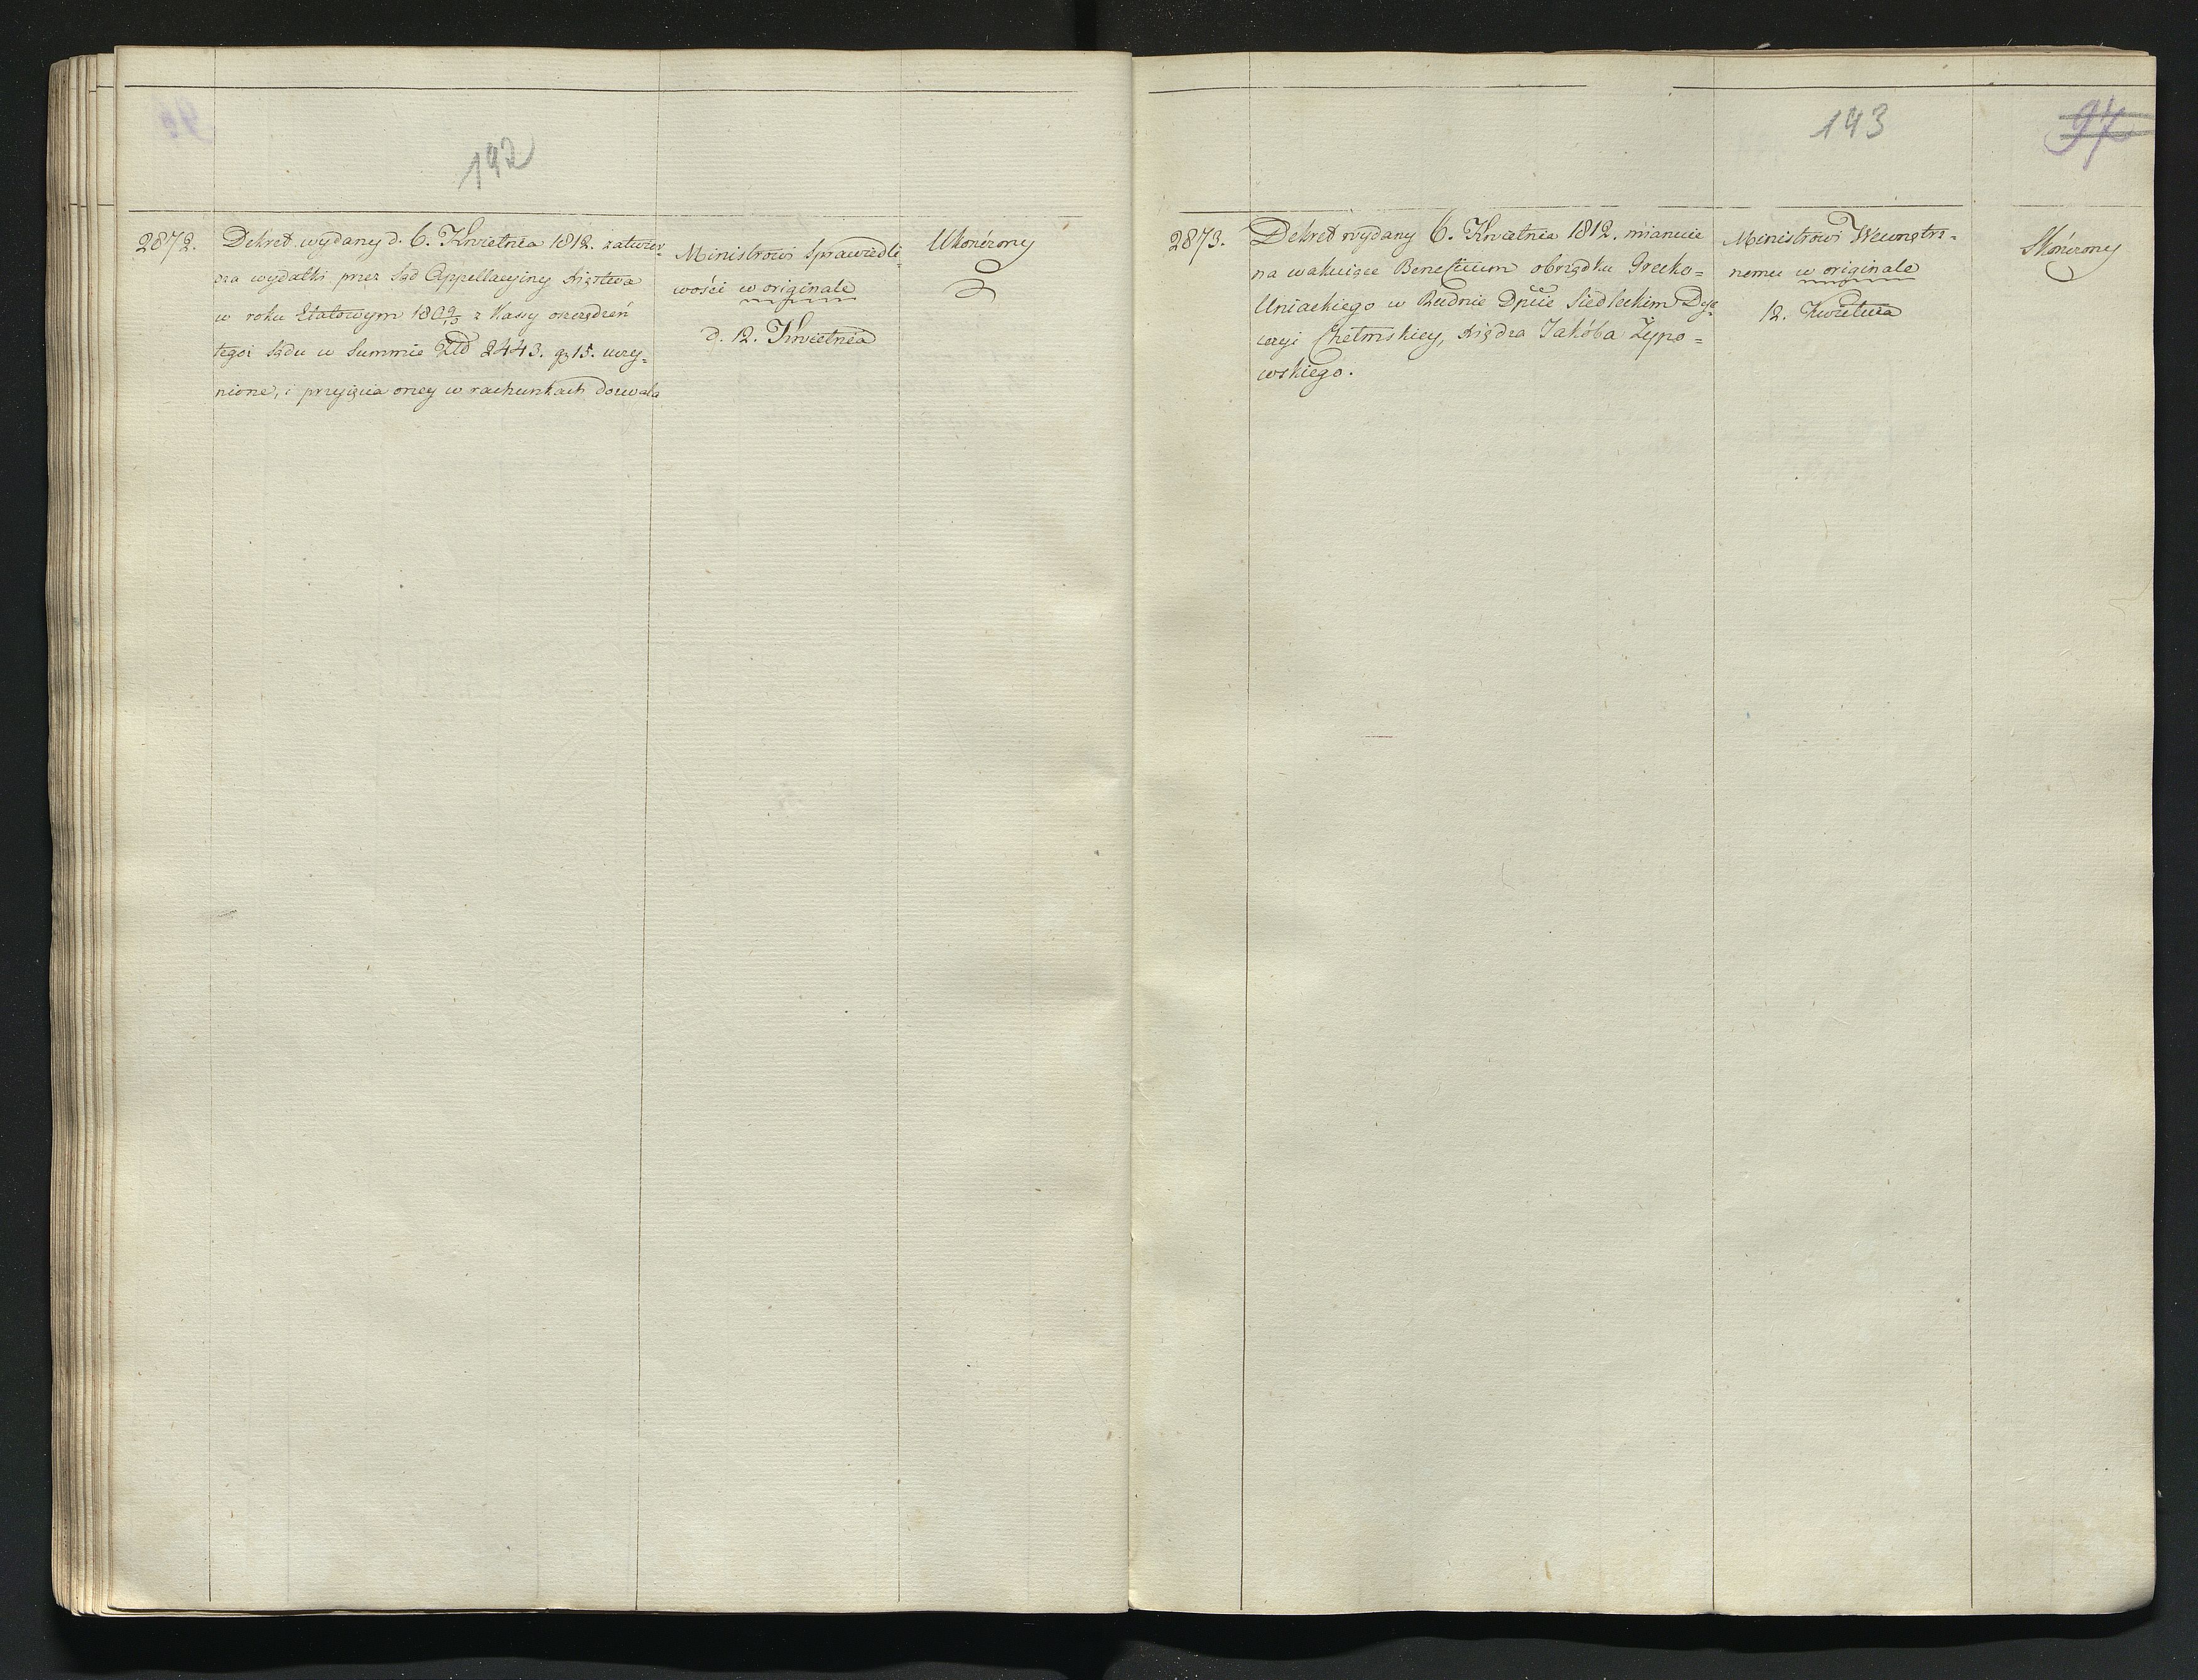 192
2872.
Dekret wydany d. 6. Kwietnia 1812. zatwier-
dza wydatki przez Sąd Appellacyiny Xięstwa
w roku Etatowym 1809/10 z Kassy oszczędzeń
tegoż Sądu w Summie Złd 2443. g 15. uczy=
nione, i przyięcia oney w rachunkach dozwala
Ministrowi Sprawiedli-
wości w originale
d. 12. Kwietnia
Ukończony
193
97
2873.
Dekret wydany 6. Kwietnia 1812. mianuie
na wakuiące Beneficium obrządku Grecko=
Uniackiego w Rudnie Dptcie Siedleckim Dye=
cezyi Chełmskiey, Xiędza Jakóba Zypo=
wskiego.
Ministrowi Wewnętrz=
nemu w originale
12. Kwietnia
Skończony